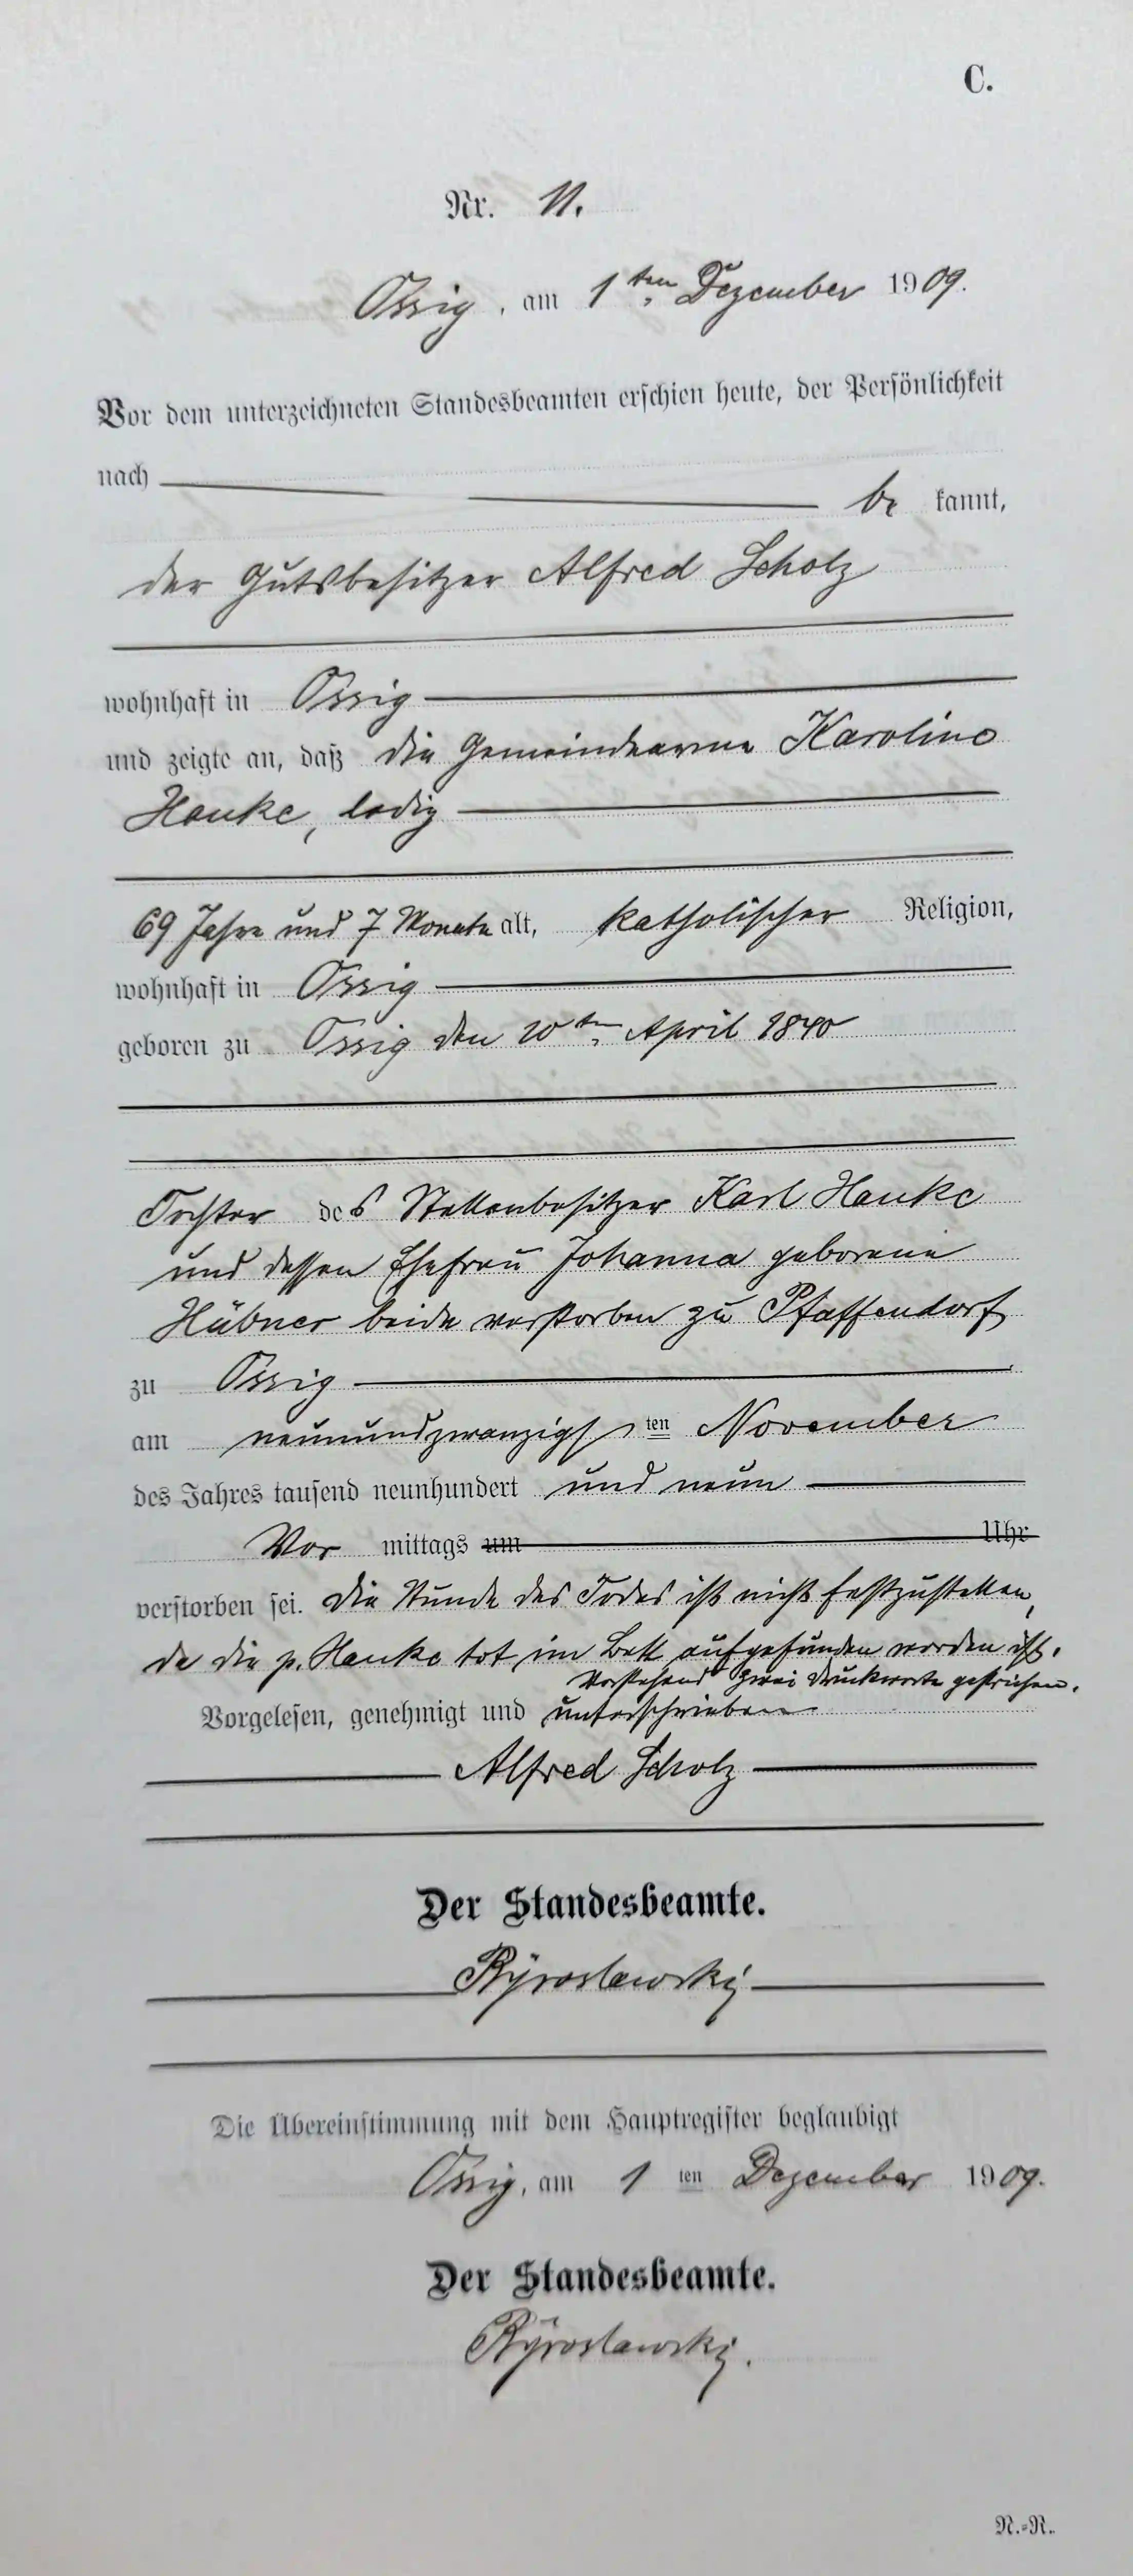 C.
Nr. 11.
Ossig, am 1ten Dezember 1909.
Vor dem unterzeichneten Standesbeamten erschien heute, der Persönlichkeit
nach be kannt,
der Gutsbesitzer Alfred Scholz
wohnhaft in Ossig
und zeigte an, daß die Gemeindearme Karoline
Hanke, ledig
69 Jahre und 7 Monate alt, katholischer Religion,
wohnhaft in Ossig
geboren zu Ossig den 10ten April 1840
Tochter des Stellenbesitzer Karl Hanke
und dessen Ehefrau Johanna geborene
Hübner beide verstorben zu Pfaffendorf
zu Ossig
am neunundzwanzigsten November
des Jahres tausend neunhundert und neun
Vor mittags um Uhr
verstorben sei. Die Stunde des Todes ist nicht festzustellen,
da die p. Hanke tot im Bett aufgefunden worden ist.
Vorstehend zwei Druckworte gestrichen.
Vorgelesen, genehmigt und unterschrieben
Alfred Scholz
Der Standesbeamte.
Die Übereinstimmung mit dem Hauptregister beglaubigt
Ossig, am 1ten Dezember 1909.
Der Standesbeamte.
N.-R.